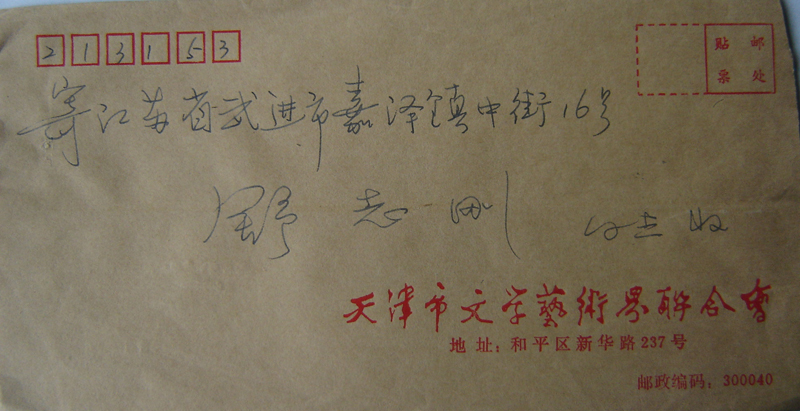 213153
贴邮
票处
寄江苏省武进市嘉泽镇中街16号
志刚 收
天津市文学藝術界联合會
地址:和平区新华路237号
邮政编码:300040